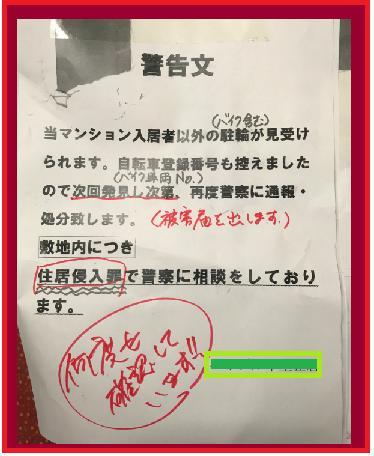 警告文
(バイク含む)
当マンション入居者以外の駐輪が見受け
られます。自転車登録番号も控えました
(バイク車両No.)
ので次回発見し次第、再度警察に通報・
処分致します。(被害届を出します.)
敷地内につき
住居侵入罪で警察に相談をしており
ます。
何度も
確認して
います!!